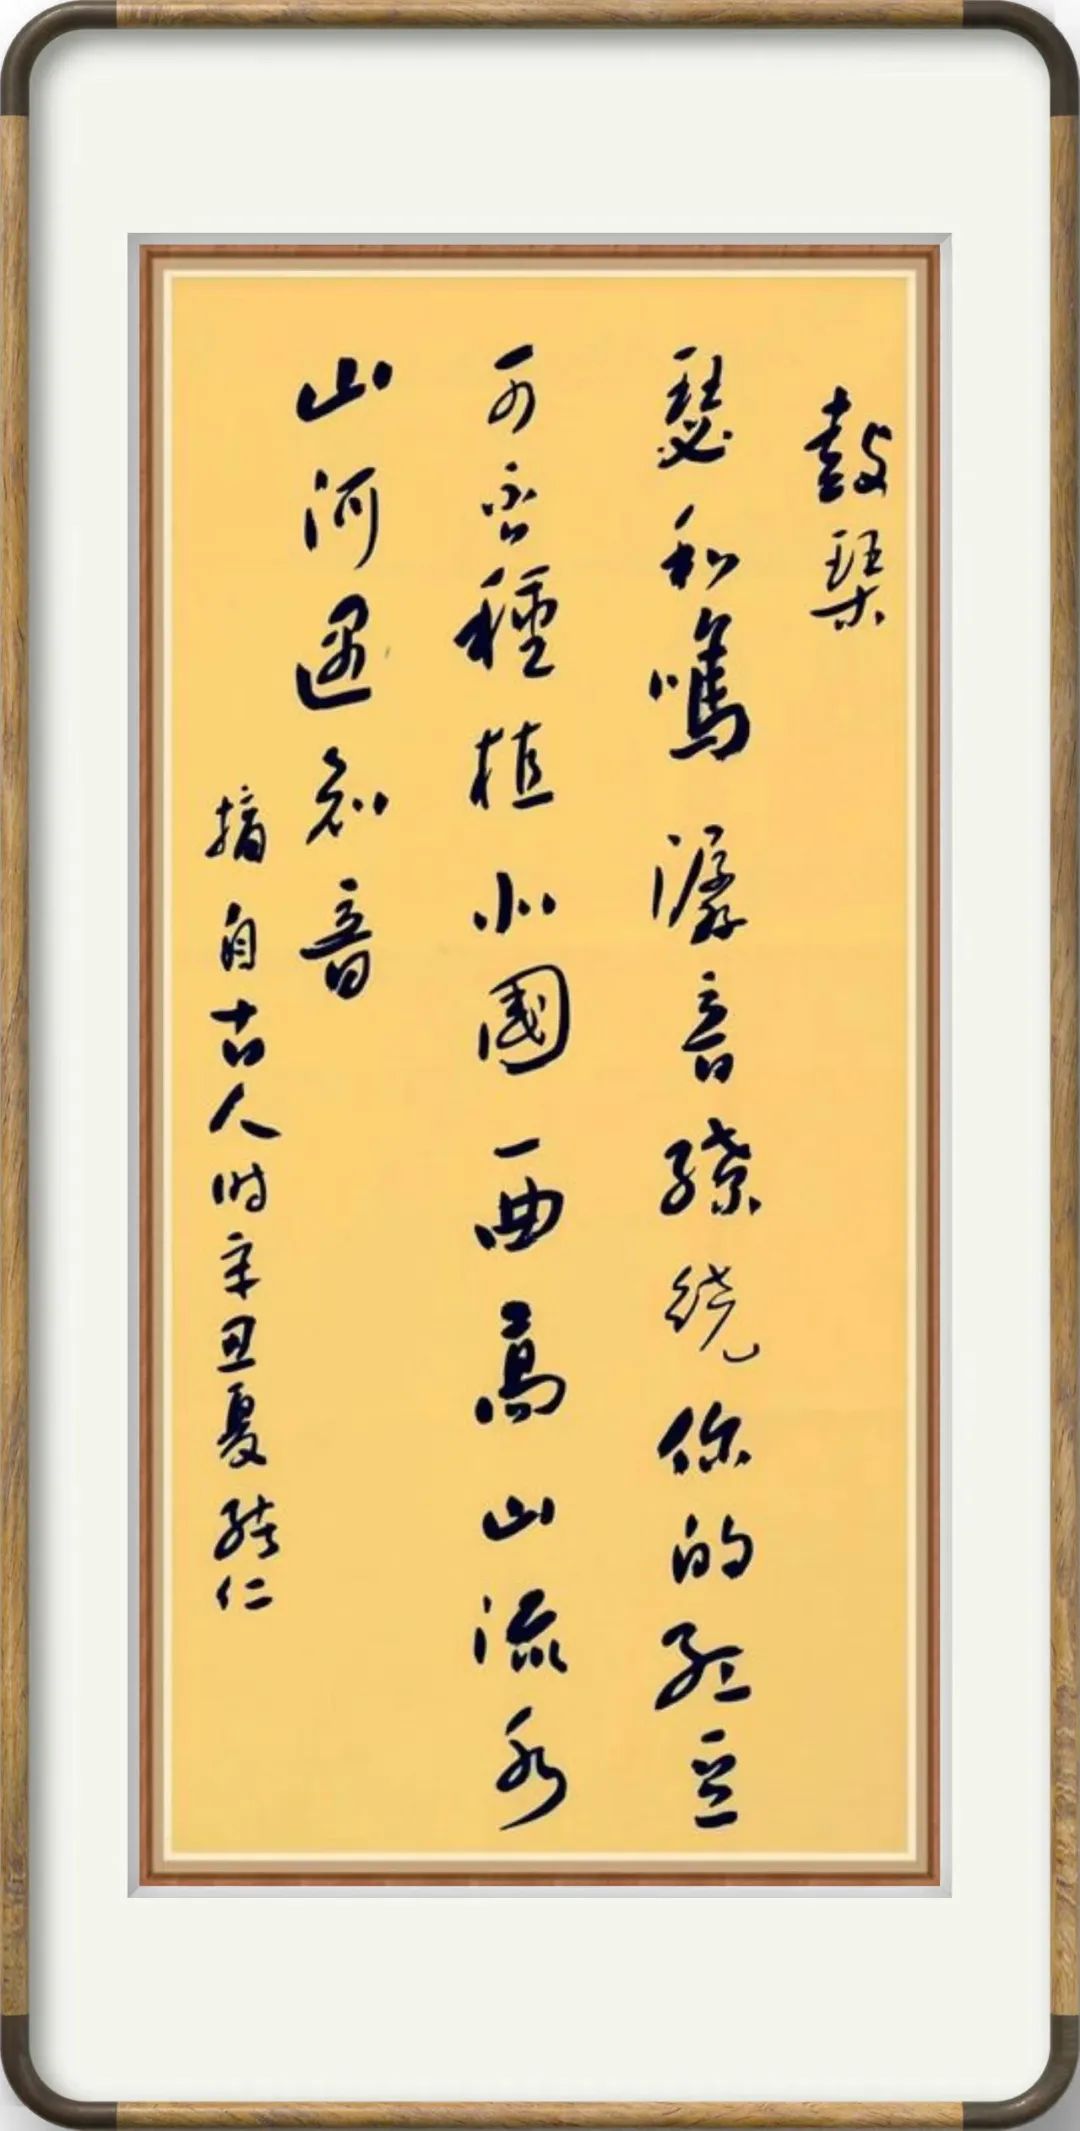 鼓琴
瑟和鳴潺音缭绕你的红豆
可否種植北國一曲高山流水
山河遇知音
摘自古人时辛丑夏仁